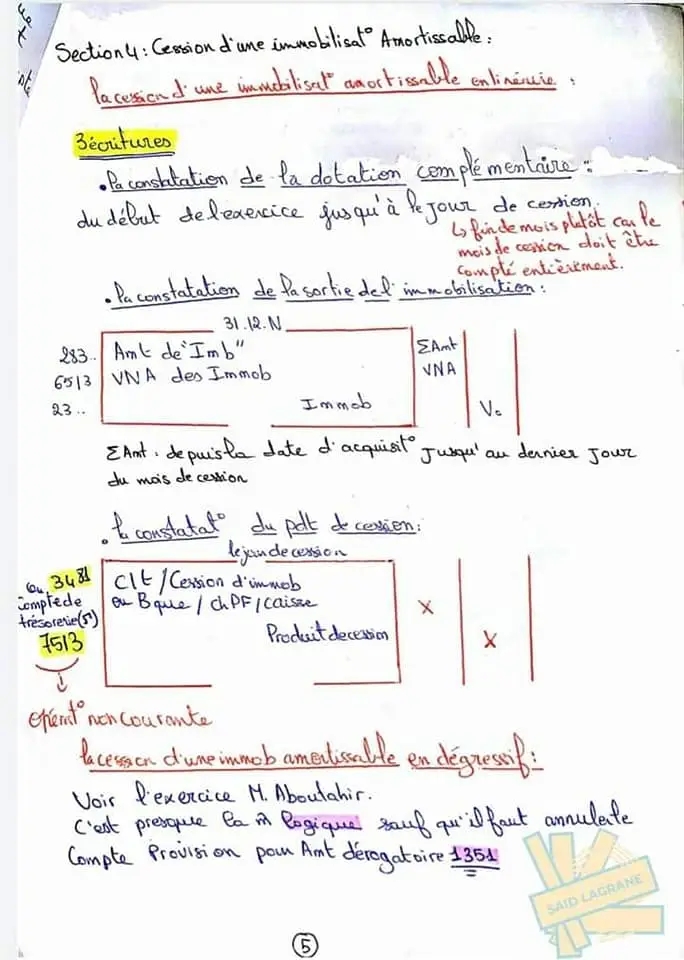 Section 4 : Cession d'une immobilisat° Amortissable :
la cession d'une immobilisat° amortissable en linéraire :
3 écritures
• la constatation de la dotation complémentaire :
du début de l'exercice jusqu'à le jour de cession.
↳ fin de mois plutôt car le
mois de cession doit être
compté entièrement.
• la constatation de la sortie de l'immobilisation :
31.12.N
283.. Amt de "Imb" ΣAmt
6513 VNA des Immob VNA
23.. Immob V₀
ΣAmt : depuis la date d'acquisit° jusqu'au dernier jour
du mois de cession
• la constatat° du pdt de cession :
le jour de cession
ou 3481 Clt / Cession d'immob
compte de ou Bque / ch PF / Caisse X
trésorerie (5)
7513 Produit de cession X
↓
opérat° non courante
la cession d'une immob amortissable en dégressif :
Voir l'exercice M. Aboutahir.
C'est presque la m̂ logique sauf qu'il faut annuler le
Compte Provision pour Amt dérogatoire 1351
SAID LAGRANE
5